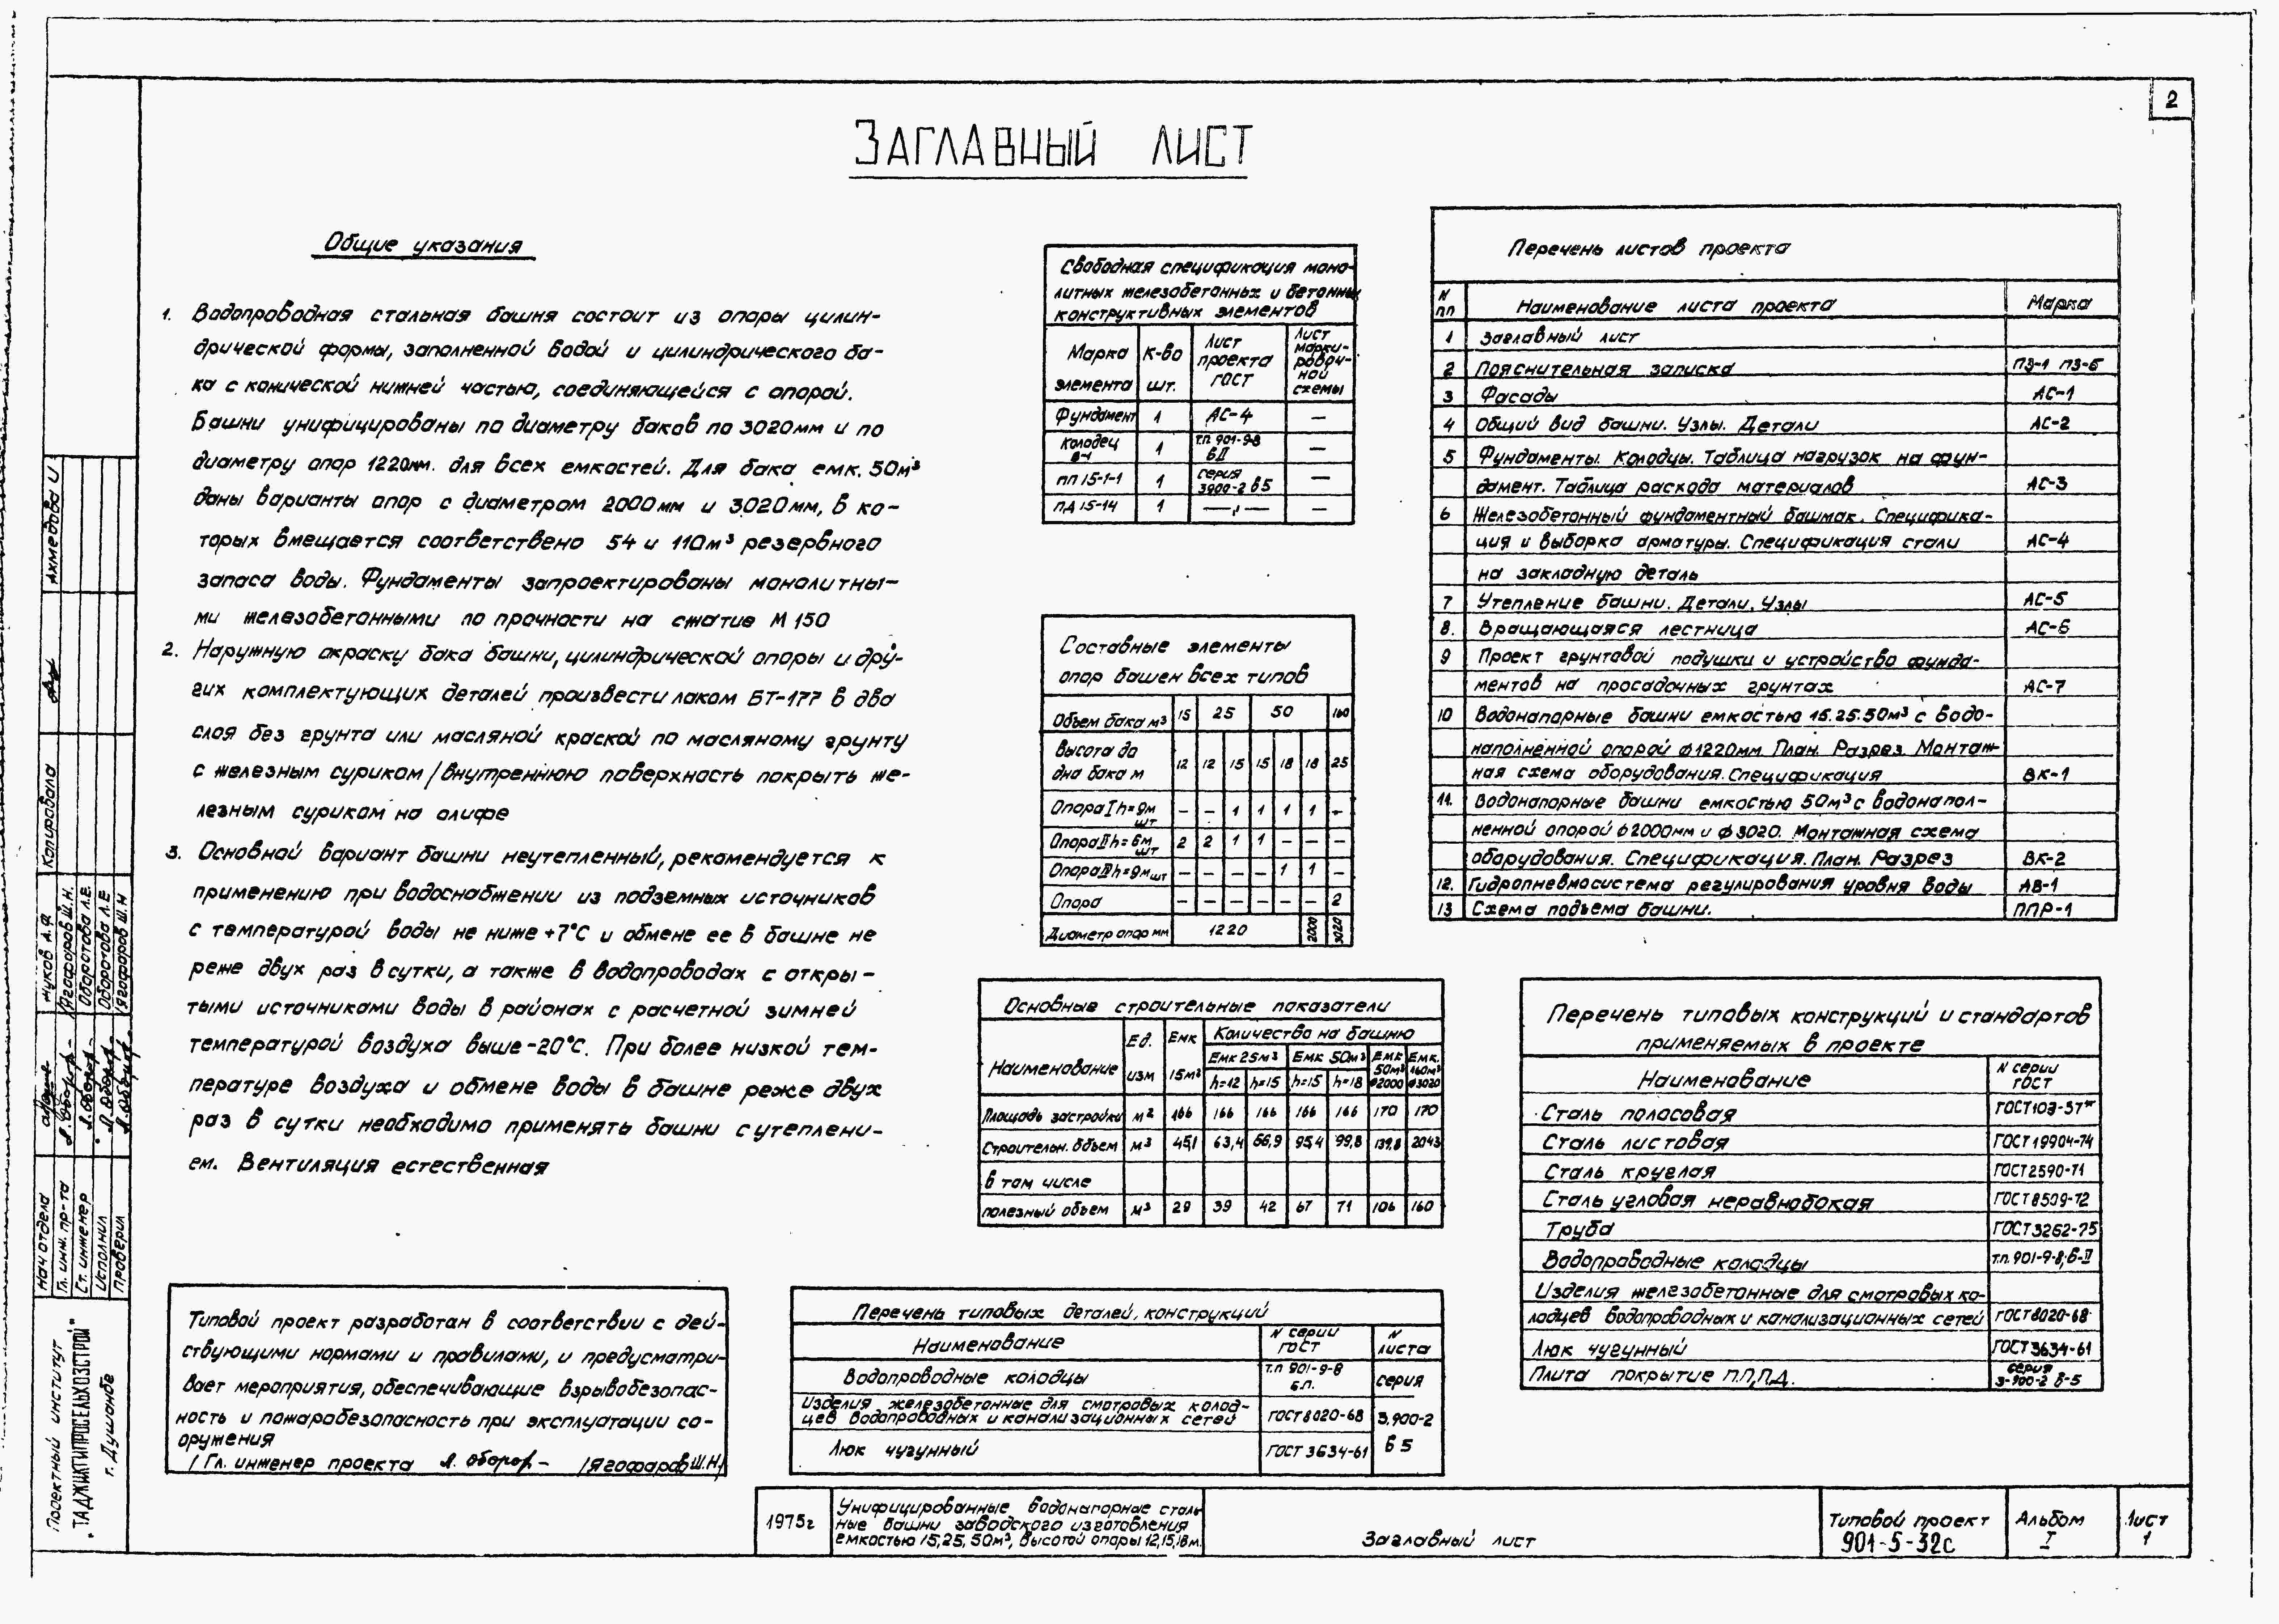 2
ЗАГЛАВНЫЙ ЛИСТ
Общие указания
1. Водопроводная стальная башня состоит из опоры цилин-
дрической формы, заполненной водой и цилиндрического ба-
ка с конической нижней частью, соединяющейся с опорой.
Башни унифицированы по диаметру баков по 3020мм и по
диаметру опор 1220мм. для всех емкостей. Для бака емк. 50м³
даны варианты опор с диаметром 2000мм и 3020мм, в ко-
торых вмещается соответствено 54 и 110м³ резервного
запаса воды. Фундаменты запроектированы монолитны-
ми железобетонными по прочности на сжатие М 150
2. Наружную окраску бака башни, цилиндрической опоры и дру-
гих комплектующих деталей произвести лаком БТ-177 в два
слоя без грунта или масляной краской по масляному грунту
с железным суриком /внутреннюю поверхность покрыть же-
лезным суриком на олифе
3. Основной вариант башни неутепленный, рекомендуется к
применению при водоснабжении из подземных источников
с температурой воды не ниже +7°С и обмене ее в башне не
реже двух раз в сутки, а также в водопроводах с откры-
тыми источниками воды в районах с расчетной зимней
температурой воздуха выше -20°С. При более низкой тем-
пературе воздуха и обмене воды в башне реже двух
раз в сутки необходимо применять башни с утеплени-
ем. Вентиляция естественная
Типовой проект разработан в соответствии с дей-
ствующими нормами и правилами, и предусматри-
вает мероприятия, обеспечивающие взрывобезопас-
ность и пожаробезопасность при эксплуатации со-
оружения
/Гл. инженер проекта /Ягофаров Ш.Н./
Свободная спецификация моно-
литных железобетонных и бетонных
конструктивных элементов
Марка элемента К-во шт. Лист проекта ГОСТ Лист маркировочной схемы
Фундамент 1 АС-4 —
Колодец В-1 1 т.п. 901-9-8 БII —
ПП 15-1-1 1 серия 3900-2 в5 —
ПД 15-14 1 —„— —
Составные элементы
опор башен всех типов
Объем бака м³ 15 25 50 160
Высота до дна бака м 12 12 15 15 18 18 25
Опора I h=9м шт — — 1 1 1 1 —
Опора II h=6м шт 2 2 1 1 — — —
Опора III h=9м шт — — — — 1 1 —
Опора — — — — — — 2
Диаметр опор мм 1220 2000 3020
Основные строительные показатели
Наименование Ед. изм Емк 15м³ Количество на башню
Емк 25м³ Емк 50м³ Емк 50м³ ø2000 Емк. 160м³ ø3020
h=12 h=15 h=15 h=18
Площадь застройки м² 166 166 166 166 166 170 170
Строительн. объем м³ 45,1 63,4 66,9 95,4 99,8 139,8 204,3
в том числе
полезный объем м³ 29 39 42 67 71 106 160
Перечень типовых деталей, конструкций
Наименование N серии ГОСТ N листа
Водопроводные колодцы т.п 901-9-8 Б.П. серия
Изделия железобетонные для смотровых колод-
цев водопроводных и канализационных сетей ГОСТ 8020-68 3.900-2
Люк чугунный ГОСТ 3634-61 в 5
Перечень листов проекта
N пп Наименование листа проекта Марка
1 Заглавный лист
2 Пояснительная записка ПЗ-1 ПЗ-6
3 Фасады АС-1
4 Общий вид башни. Узлы. Детали АС-2
5 Фундаменты. Колодцы. Таблица нагрузок на фун-
дамент. Таблица расхода материалов АС-3
6 Железобетонный фундаментный башмак. Специфика-
ция и выборка арматуры. Спецификация стали АС-4
на закладную деталь
7 Утепление башни. Детали, Узлы АС-5
8. Вращающаяся лестница АС-6
9 Проект грунтовой подушки и устройство фунда-
ментов на просадочных грунтах АС-7
10 Водонапорные башни емкостью 15.25.50м³ с водо-
наполненной опорой ф1220мм. План. Разрез. Монтаж-
ная схема оборудования. Спецификация ВК-1
11. Водонапорные башни емкостью 50м³ с водонапол-
ненной опорой ф2000мм и ф3020. Монтажная схема
оборудования. Спецификация. План. Разрез ВК-2
12. Гидропневмосистема регулирования уровня воды АВ-1
13 Схема подъема башни. ППР-1
Перечень типовых конструкций и стандартов
применяемых в проекте
Наименование N серии ГОСТ
Сталь полосовая ГОСТ 103-57*
Сталь листовая ГОСТ 19904-74
Сталь круглая ГОСТ 2590-71
Сталь угловая неравнобокая ГОСТ 8509-72
Труба ГОСТ 3262-75
Водопроводные колодцы т.п. 901-9-8, Б-II
Изделия железобетонные для смотровых ко-
лодцев водопроводных и канализационных сетей ГОСТ 8020-68
Люк чугунный ГОСТ 3634-61
Плита покрытие П.П, П.Д. серия 3-900-2 в-5
1975г
Унифицированные водонапорные сталь-
ные башни заводского изготовления
емкостью 15, 25, 50м³, высотой опоры 12,15,18м.
Заглавный лист
Типовой проект
901-5-32с
Альбом
I
Лист
1
Проектный институт
"ТАДЖИКГИПРОСЕЛЬХОЗСТРОЙ"
г. Душанбе
Нач отдела Жуков А.Ф
Гл. инж. пр-та Ягофаров Ш.Н.
Ст. инженер Оборотова Л.Е.
Исполнил Оборотова Л.Е
Проверил Ягофаров Ш.Н
Копировала Ахмедова И